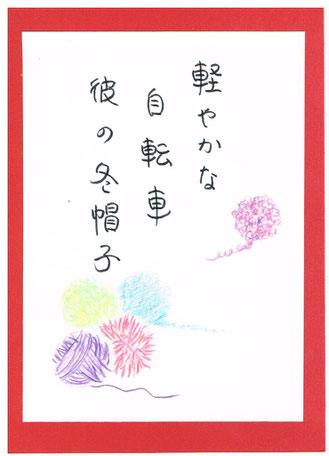 軽やかな
自転車
彼の冬帽子